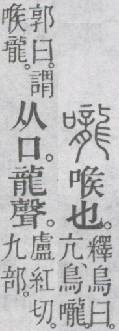 嚨
喉也。
釋鳥曰。
亢、鳥嚨。
郭曰。謂
喉嚨。
从口。龍聲。
盧紅切。
九部。